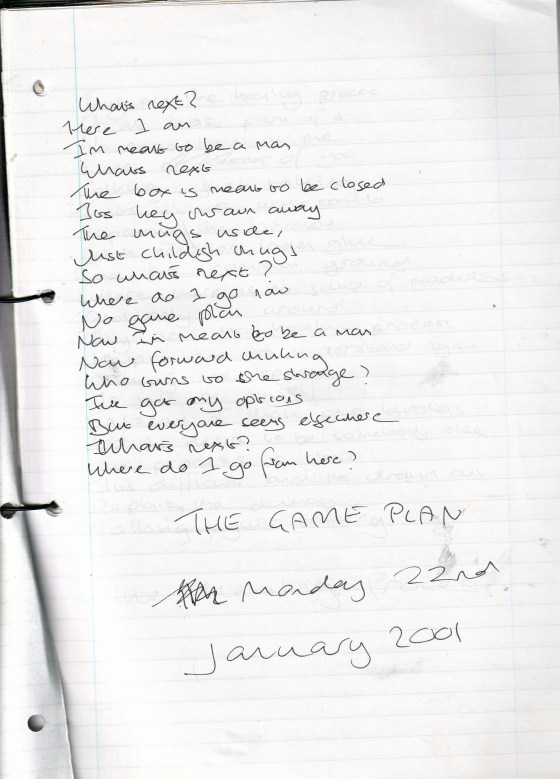 Whats next?
Here I am
Im meant to be a man
Whats next
The box is meant to be closed
Its key thrown away
The things inside,
Just childish things
So whats next?
Where do I go now
No game plan
Now im meant to be a man
Now forward thinking
Who turns to the
Ive got my options
But everyone seems elsewhere
Whats next?
Where do I go from here?
THE GAME PLAN
Monday 22nd
January 2001